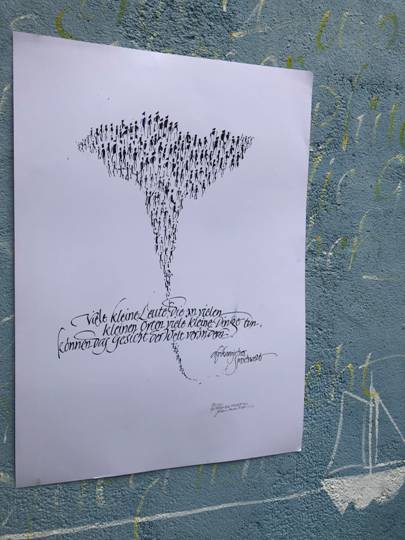 Viele kleine Leute, die in vielen
kleinen Orten viele kleine Dinge tun,
können das Gesicht der Welt verändern.
afrikanisches
Sprichwort